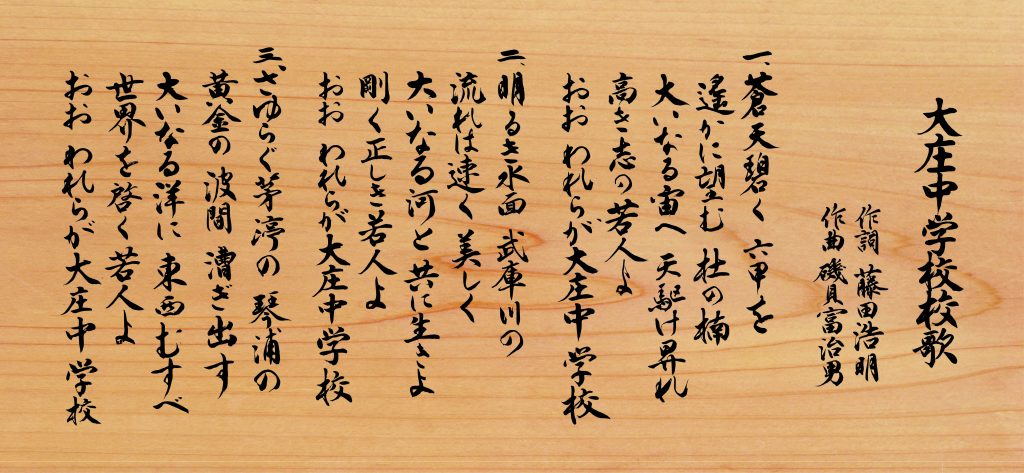 大庄中学校校歌
作詞 藤田浩明
作曲 磯貝富治男
一、蒼天碧く 六甲を
遙かに望む 杜の楠
大いなる宙へ 天駆け昇れ
高き志の若人よ
おお われらが大庄中 学校
二、明るき水面 武庫川の
流れは速く 美しく
大いなる河と 共に生きよ
剛く正しき若人よ
おお われらが大庄中学校
三、さゆらぐ茅渟の 琴浦の
黄金の 波間 漕ぎ出す
大いなる洋に 東西むすべ
世界を啓く 若人よ
おお われらが大庄中 学校